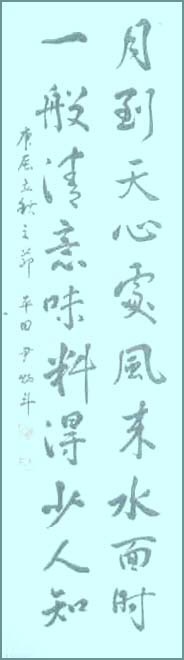 月到天心處風来水面时
一般清意味料得少人知
庚辰立秋之節 平田 尹炳斗